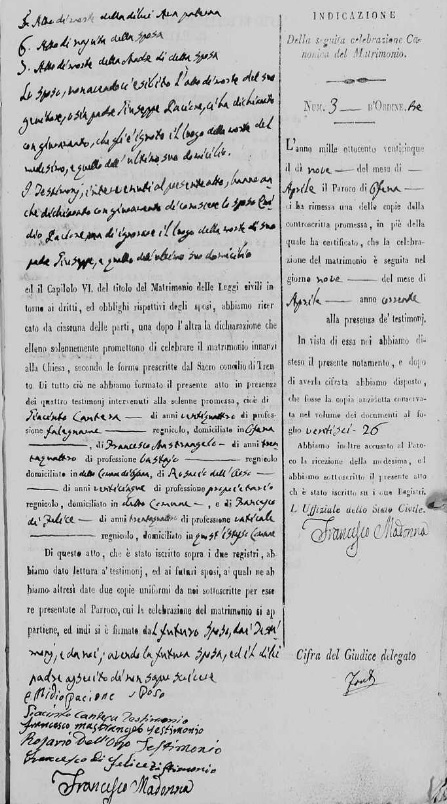 5. Atto di morte della di lei Ava paterna
6. Atto di nascita della sposa
7. Atto di morte della Madre di detta sposa
Lo sposo, non avendoci esibito l'atto di morte del suo
genitore, ossia padre Giuseppe Pacione, ci ha dichiarato
con giuramento, che gli è ignoto il luogo della morte del
medesimo, e quello dell'ultimo suo domicilio.
I Testimonj, intervenuti al presente atto, hanno an
che dichiarato con giuramento di conoscere lo sposo
Pacione, ma di ignorare il luogo della morte di suo
padre Giuseppe, e quello dell'ultimo suo domicilio
ed il Capitolo VI. del titolo del Matrimonio delle Leggi civili in-
torno ai dritti, ed obblighi rispettivi degli sposi, abbiamo ricer-
cato da ciascuna delle parti, una dopo l'altra la dichiarazione che
elleno solennemente promettono di celebrare il matrimonio innanzi
alla Chiesa, secondo le forme prescritte dal Sacro concilio di Tren-
to. Di tutto ciò ne abbiamo formato il presente atto in presenza
dei quattro testimonj intervenuti alla solenne promessa, cioè di
Giacinto Cantera di anni ventiquattro di profes-
sione falegname regnicolo, domiciliato in Ofena
, di Francesco Mastrangelo di anni tren
taquattro di professione bastajo regnicolo
domiciliato in detto Comune di Ofena, di Rosario dell'Orso
di anni venticinque di professione proprietario
regnicolo, domiciliato in detto Comune, e di Francesco
di Felice di anni trentaquattro di professione vaticale
regnicolo, domiciliato in quest'istesso Comune
Di questo atto, che è stato iscritto sopra i due registri, ab-
biamo dato lettura a' testimonj, ed ai futuri sposi, ai quali ne ab-
biamo altresì date due copie uniformi da noi sottoscritte per esse-
re presentate al Parroco, cui la celebrazione del matrimonio si ap-
partiene, ed indi si è firmato dal futuro sposo, dai Testi
monj, e da noi, avendo la futura sposa, ed il di lei
padre asserito di non saper scrivere
Pacione sposo
Giacinto Cantera Testimonio
Francesco Mastrangelo Testimonio
Rosario Dell'Orso Testimonio
Francesco Di Felice Testimonio
Francesco Madonna
INDICAZIONE
Della seguita celebrazione Ca-
nonica del Matrimonio.
NUM. 3 D'ORDINE
L'anno mille ottocento venticinque
il dì nove del mese di
Aprile il Parroco di Ofena
ci ha rimessa una delle copie della
controscritta promessa, in piè della
quale ha certificato, che la celebra-
zione del matrimonio è seguita nel
giorno nove del mese di
Aprile anno corrente
alla presenza de' testimonj.
In vista di essa noi abbiamo di-
steso il presente notamento, e dopo
di averla cifrata abbiamo disposto,
che fosse la copia anzidetta conserva-
ta nel volume dei documenti al fo-
glio ventisei - 26
Abbiamo inoltre accusato al Paro-
co la ricezione della medesima, ed
abbiamo sottoscritto il presente atto
ch è stato iscritto su i due Registri.
L Uffiziale dello Stato Civile.
Francesco Madonna
Cifra del Giudice delegato